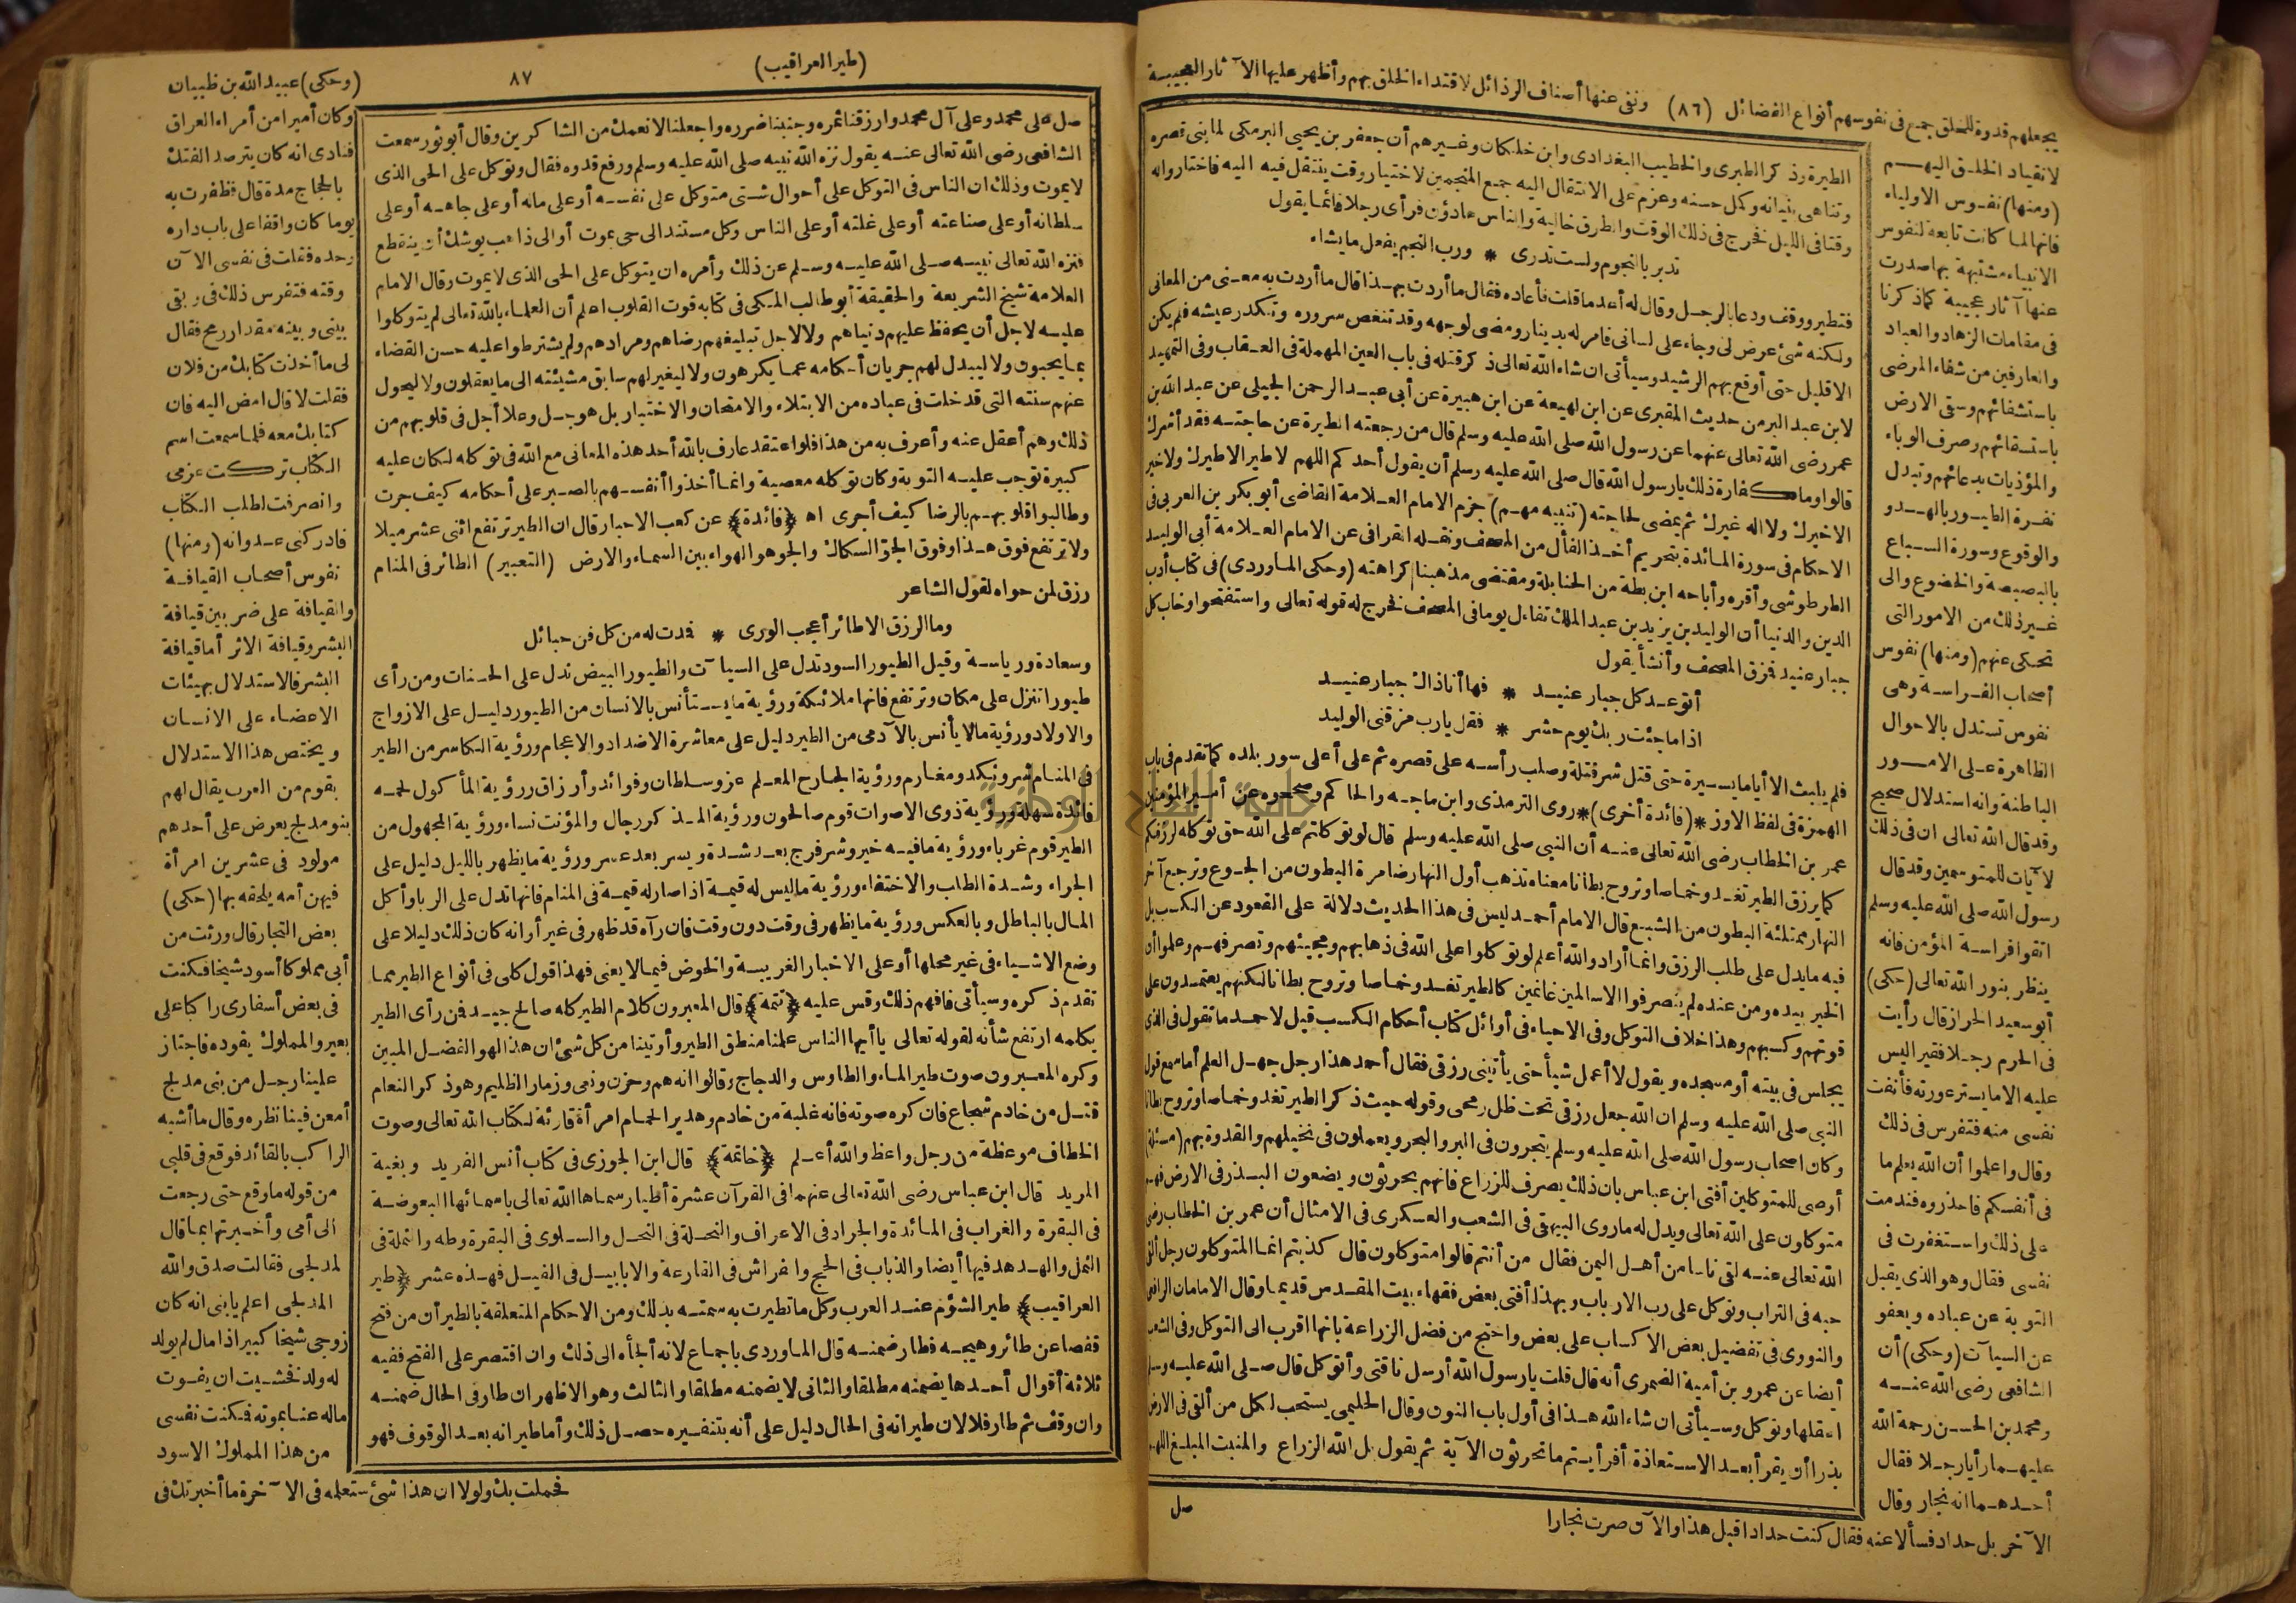 يجعلهم قدوة للخلق جمع في نفوسهم أنواع الفضائل (٨٦) ونفى عنها أصناف الرذائل لاقتداء الخلق بهم وأظهر عليها الآثار العجيبة
لانقياد الخلق اليهم
(ومنها) نفوس الاولياء
فانها لما كانت تابعة لنفوس
الانبياء مشتبهة بها صدرت
عنها آثار عجيبة كما ذكرنا
في مقامات الزهاد والعباد
والعارفين من شفاء المرضى
باستشفائهم وسقى الارض
باستسقائهم وصرف الوباء
والمؤذيات بدعائهم وتبدل
نفرة الطيور بالهدو
والوقوع وسورة السباع
بالبصبصة والخضوع والى
غير ذلك من الامور التى
تحكى عنهم (ومنها) نفوس
أصحاب الفراسة وهى
نفوس تستدل بالاحوال
الظاهرة على الامور
الباطنة وانه استدلال صحيح
وقد قال الله تعالى ان في ذلك
لآيات للمتوسمين وقد قال
رسول الله صلى الله عليه وسلم
اتقوا فراسة المؤمن فانه
ينظر بنور الله تعالى (حكى)
أبو سعيد الخراز قال رأيت
في الحرم رجلا فقيرا ليس
عليه الا ما يستر عورته فأنفت
نفسى منه فتفرس في ذلك
وقال واعلموا أن الله يعلم ما
في أنفسكم فاحذروه فندمت
على ذلك واستغفرت في
نفسى فقال وهو الذى يقبل
التوبة عن عباده ويعفو
عن السيآت (وحكى) أن
الشافعى رضى الله عنه
ومحمد بن الحسن رحمة الله
عليهما رأيا رجلا فقال
أحدهما انه نجار وقال
الآخر بل حداد فسألا عنه فقال كنت حدادا قبل هذا والآن صرت نجارا
الطيرة ذكر الطبرى والخطيب البغدادى وابن خلكان وغيرهم أن جعفر بن يحيى البرمكى لما بنى قصره
وتناهى بنيانه وكمل حسنه وعزم على الانتقال اليه جمع المنجمين لاختيار وقت ينتقل فيه اليه فاختاروا له
وقتا في الليل فخرج في ذلك الوقت والطرق خالية والناس هادؤن فرأى رجلا قائما يقول
تدبر بالنجوم ولست تدرى * ورب النجم يفعل ما يشاء
فتطير ووقف ودعا بالرجل وقال له أعد ما قلت فأعاده فقال ما أردت بهذا قال ما أردت به معنى من المعانى
ولكنه شئ عرض لى وجاء على لسانى فامر له بدينار ومضى لوجهه وقد تنغص سروره وتكدر عيشه فلم يكن
الا قليل حتى أوقع بهم الرشيد وسيأتى ان شاء الله تعالى ذكر قتله في باب العين المهملة في العقاب وفي التمهيد
لابن عبد البر من حديث المقبرى عن ابن لهيعة عن ابن هبيرة عن أبى عبد الرحمن الجيلى عن عبد الله بن
عمر رضى الله تعالى عنهما عن رسول الله صلى الله عليه وسلم قال من رجعته الطيرة عن حاجته فقد أشرك
قالوا وما كفارة ذلك يا رسول الله قال صلى الله عليه وسلم أن يقول أحدكم اللهم لا طير الا طيرك ولا خير
الا خيرك ولا اله غيرك ثم يمضى لحاجته (تنبيه مهم) جزم الامام العلامة القاضى أبو بكر بن العربى في
الاحكام في سورة المائدة بتحريم أخذ الفأل من المصحف ونقله القرافى عن الامام العلامة أبى الوليد
الطرطوشى وأقره وأباحه ابن بطة من الحنابلة ومقتضى مذهبنا كراهته (وحكى الماوردى) في كتاب أدب
الدين والدنيا أن الوليد بن يزيد بن عبد الملك تفاءل يوما في المصحف فخرج له قوله تعالى واستفتحوا وخاب كل
جبار عنيد فمزق المصحف وأنشأ يقول
أتوعد كل جبار عنيد * فها أنا ذاك جبار عنيد
اذا ما جئت ربك يوم حشر * فقل يا رب مزقنى الوليد
فلم يلبث الا أياما يسيرة حتى قتل شر قتلة وصلب رأسه على قصره ثم على أعلى سور بلده كما تقدم في باب
الهمزة في لفظ الاوز *(فائدة أخرى)* روى الترمذى وابن ماجه والحاكم وصححوه عن أمير المؤمنين
عمر بن الخطاب رضى الله تعالى عنه أن النبى صلى الله عليه وسلم قال لو توكلتم على الله حق توكله لرزقكم
كما يرزق الطير تغدو خماصا وتروح بطانا معناه تذهب أول النهار ضامرة البطون من الجوع وترجع آخر
النهار ممتلئة البطون من الشبع قال الامام أحمد ليس في هذا الحديث دلالة على القعود عن الكسب بل
فيه ما يدل على طلب الرزق وانما أراد والله أعلم لو توكلوا على الله في ذهابهم ومجيئهم وتصرفهم وعلموا أن
الخير بيده ومن عنده لم ينصرفوا الا سالمين غانمين كالطير تغدو خماصا وتروح بطانا لكنهم يعتمدون على
قوتهم وكسبهم وهذا خلاف التوكل وفي الاحياء في أوائل كتاب أحكام الكسب قيل لاحمد ما تقول في الذى
يجلس في بيته أو مسجده ويقول لا أعمل شيأ حتى يأتينى رزقى فقال أحمد هذا رجل جهل العلم أما سمع قول
النبى صلى الله عليه وسلم ان الله جعل رزقى تحت ظل رمحى وقوله حيث ذكر الطير تغدو خماصا وتروح بطانا
وكان اصحاب رسول الله صلى الله عليه وسلم يتجرون في البر والبحر ويعملون في نخيلهم والقدوة بهم (مسئلة)
أوصى للمتوكلين أفتى ابن عباس بان ذلك يصرف للزراع فانهم يحرثون ويضعون البذر في الارض فهم
متوكلون على الله تعالى ويدل له ما روى البيهقى في الشعب والعسكرى في الامثال أن عمر بن الخطاب رضى
الله تعالى عنه لقى ناسا من أهل اليمن فقال من أنتم قالوا متوكلون قال كذبتم انما المتوكلون رجل ألقى
حبه في التراب وتوكل على رب الارباب وبهذا أفتى بعض فقهاء بيت المقدس قديما وقال الامامان الرافعى
والنووى في تفضيل بعض الاكساب على بعض واحتج من فضل الزراعة بانها اقرب الى التوكل وفي الشعب
أيضا عن عمرو بن أمية الضمرى أنه قال قلت يا رسول الله أرسل ناقتى وأتوكل قال صلى الله عليه وسلم
اعقلها وتوكل وسيأتى ان شاء الله هذا في أول باب النون وقال الحليمى يستحب لكل من ألقى في الارض
بذرا أن يقرأ بعد الاستعاذة أفرأيتم ما تحرثون الآية ثم يقول بل الله الزراع والمنبت المبلغ اللهم
صل
(طير العراقيب) ٨٧
صل على محمد وعلى آل محمد وارزقنا ثمره وجنبنا ضرره واجعلنا لانعمك من الشاكرين وقال أبو ثور سمعت
الشافعى رضى الله تعالى عنه يقول نزه الله نبيه صلى الله عليه وسلم ورفع قدره فقال وتوكل على الحى الذى
لا يموت وذلك ان الناس في التوكل على أحوال شتى متوكل على نفسه أو على ماله أو على جاهه أو على
سلطانه أو على صناعته أو على غلته أو على الناس وكل مستند الى حى يموت أو الى ذاهب يوشك أن ينقطع
فنزه الله تعالى نبيه صلى الله عليه وسلم عن ذلك وأمره ان يتوكل على الحى الذى لا يموت وقال الامام
العلامة شيخ الشريعة والحقيقة أبو طالب المكى في كتابه قوت القلوب اعلم أن العلماء بالله تعالى لم يتوكلوا
عليه لاجل أن يحفظ عليهم دنياهم ولا لاجل تبليغهم رضاهم ومرادهم ولم يشترطوا عليه حسن القضاء
بما يحبون ولا ليبدل لهم جريان أحكامه عما يكرهون ولا ليغير لهم سابق مشيئته الى ما يعقلون ولا ليحول
عنهم سنته التى قد خلت في عباده من الابتلاء والامتحان والاختبار بل هو جل وعلا أجل في قلوبهم من
ذلك وهم أعقل عنه وأعرف به من هذا فلو اعتقد عارف بالله أحد هذه المعانى مع الله في توكله لكان عليه
كبيرة توجب عليه التوبة وكان توكله معصية وانما أخذوا أنفسهم بالصبر على أحكامه كيف جرت
وطالبوا قلوبهم بالرضا كيف أجرى اه (فائدة) عن كعب الاحبار قال ان الطير ترتفع اثنى عشر ميلا
ولا ترتفع فوق هذا وفوق الجو السكاك والجو هو الهواء بين السماء والارض (التعبير) الطائر في المنام
رزق لمن حواه لقول الشاعر
وما الرزق الا طائر أعجب الورى * فمدت له من كل فن حبائل
وسعادة ورياسة وقيل الطيور السود تدل على السيآت والطيور البيض تدل على الحسنات ومن رأى
طيورا تنزل على مكان وترتفع فانها ملائكة ورؤية ما يستأنس بالانسان من الطيور دليل على الازواج
والاولاد ورؤية مالا يأنس بالآدمى من الطير دليل على معاشرة الاضداد والاعجام ورؤية الكاسر من الطير
في المنام شر ونكد ومغارم ورؤية الجارح المعلم عز وسلطان وفوائد وأرزاق ورؤية المأكول لحمه
فائدة سهلة ورؤية ذوى الاصوات قوم صالحون ورؤية المذكر رجال والمؤنث نساء ورؤية المجهول من
الطير قوم غرباء ورؤية ما فيه خير وشر فرج بعد شدة ويسر بعد عسر ورؤية ما يظهر بالليل دليل على
الجراء وشدة الطلب والاختفاء ورؤية ما ليس له قيمة اذا صار له قيمة في المنام فانها تدل على الربا وأكل
المال بالباطل وبالعكس ورؤية ما يظهر في وقت دون وقت فان رآه قد ظهر في غير أوانه كان ذلك دليلا على
وضع الاشياء في غير محلها أو على الاخبار الغريبة والخوض فيما لا يعنى فهذا قول كلى في أنواع الطير مما
تقدم ذكره وسيأتى فافهم ذلك وقس عليه (تتمة) قال المعبرون كلام الطير كله صالح جيد فمن رأى الطير
يكلمه ارتفع شأنه لقوله تعالى يا أيها الناس علمنا منطق الطير وأوتينا من كل شئ ان هذا لهو الفضل المبين
وكره المعبرون صوت طير الماء والطاوس والدجاج وقالوا انه هم وحزن ونعى وزمار الظليم وهو ذكر النعام
قتل من خادم شجاع فان كره صوته فانه غلبة من خادم وهدير الحمام امرأة قارئة لكتاب الله تعالى وصوت
الخطاف موعظة من رجل واعظ والله أعلم (خاتمة) قال ابن الجوزى في كتاب أنس الفريد وبغية
المريد قال ابن عباس رضى الله تعالى عنهما في القرآن عشرة أطيار سماها الله تعالى باسمائها البعوضة
في البقرة والغراب في المائدة والجراد في الاعراف والنحلة في النحل والسلوى في البقرة وطه والنملة في
النمل والهدهد فيها أيضا والذباب في الحج والفراش في القارعة والابابيل في الفيل فهذه عشر (طير
العراقيب) طير الشؤم عند العرب وكل ما تطيرت به سمته بذلك ومن الاحكام المتعلقة بالطير أن من فتح
قفصا عن طائر وهيجه فطار ضمنه قال الماوردى باجماع لانه ألجأه الى ذلك وان اقتصر على الفتح ففيه
ثلاثة أقوال أحدها يضمنه مطلقا والثانى لا يضمنه مطلقا والثالث وهو الاظهر ان طار في الحال ضمنه
وان وقف ثم طار فلا لان طيرانه في الحال دليل على أنه بتنفيره حصل ذلك وأما طيرانه بعد الوقوف فهو
(وحكى) عبيد الله بن ظبيان
وكان أميرا من أمراء العراق
فنادى انه كان يترصد الفتك
بالحجاج مدة قال فظفرت به
يوما كان واقفا على باب داره
وحده فقلت في نفسى الآن
وقته فتفرس ذلك في وبقى
بينى وبينه مقدار رمح فقال
لى ما أخذت كتابك من فلان
فقلت لا قال امض اليه فان
كتابك معه فلما سمعت اسم
الكتاب تركت عزمى
وانصرفت لطلب الكتاب
فادركنى عدوانه (ومنها)
نفوس أصحاب القيافة
والقيافة على ضربين قيافة
البشر وقيافة الاثر أما قيافة
البشر فالاستدلال بهيئات
الاعضاء على الانسان
ويختص هذا الاستدلال
بقوم من العرب يقال لهم
بنو مدلج يعرض على أحدهم
مولود في عشرين امرأة
فيهن أمه يلحقه بها (حكى)
بعض التجار قال ورثت من
أبى مملوكا أسود شيخا فكنت
في بعض أسفارى راكبا على
بعير والمملوك يقوده فاجتاز
علينا رجل من بنى مدلج
أمعن فينا نظره وقال ما أشبه
الراكب بالقائد فوقع في قلبى
من قوله ما وقع حتى رجعت
الى أمى وأخبرتها بما قال
المدلجى فقالت صدق والله
المدلجى اعلم يا بنى انه كان
زوجى شيخا كبيرا ذا مال لم يولد
له ولد فخشيت ان يفوت
ماله عنا بموته فمكنت نفسى
من هذا المملوك الاسود
فحملت بك ولولا ان هذا شئ ستعلمه في الآخرة ما أخبرتك في
جامعة النجاح الوطنية